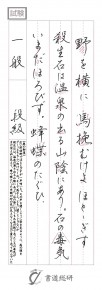 試験
野を横に馬挽むけよほとゝぎす
殺生石は温泉の出る山陰にあり。石の毒気
いまだほろびず。蜂蝶のたぐひ
一般
段級
書道総研